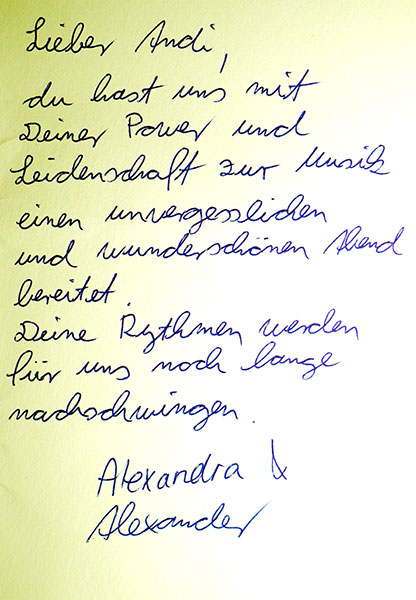 Lieber Andi,
du hast uns mit
Deiner Power und
Leidenschaft zur Musik
einen unvergesslichen
und wunderschönen Abend
bereitet.
Deine Rythmen werden
für uns noch lange
nachschwingen.
Alexandra &
Alexander